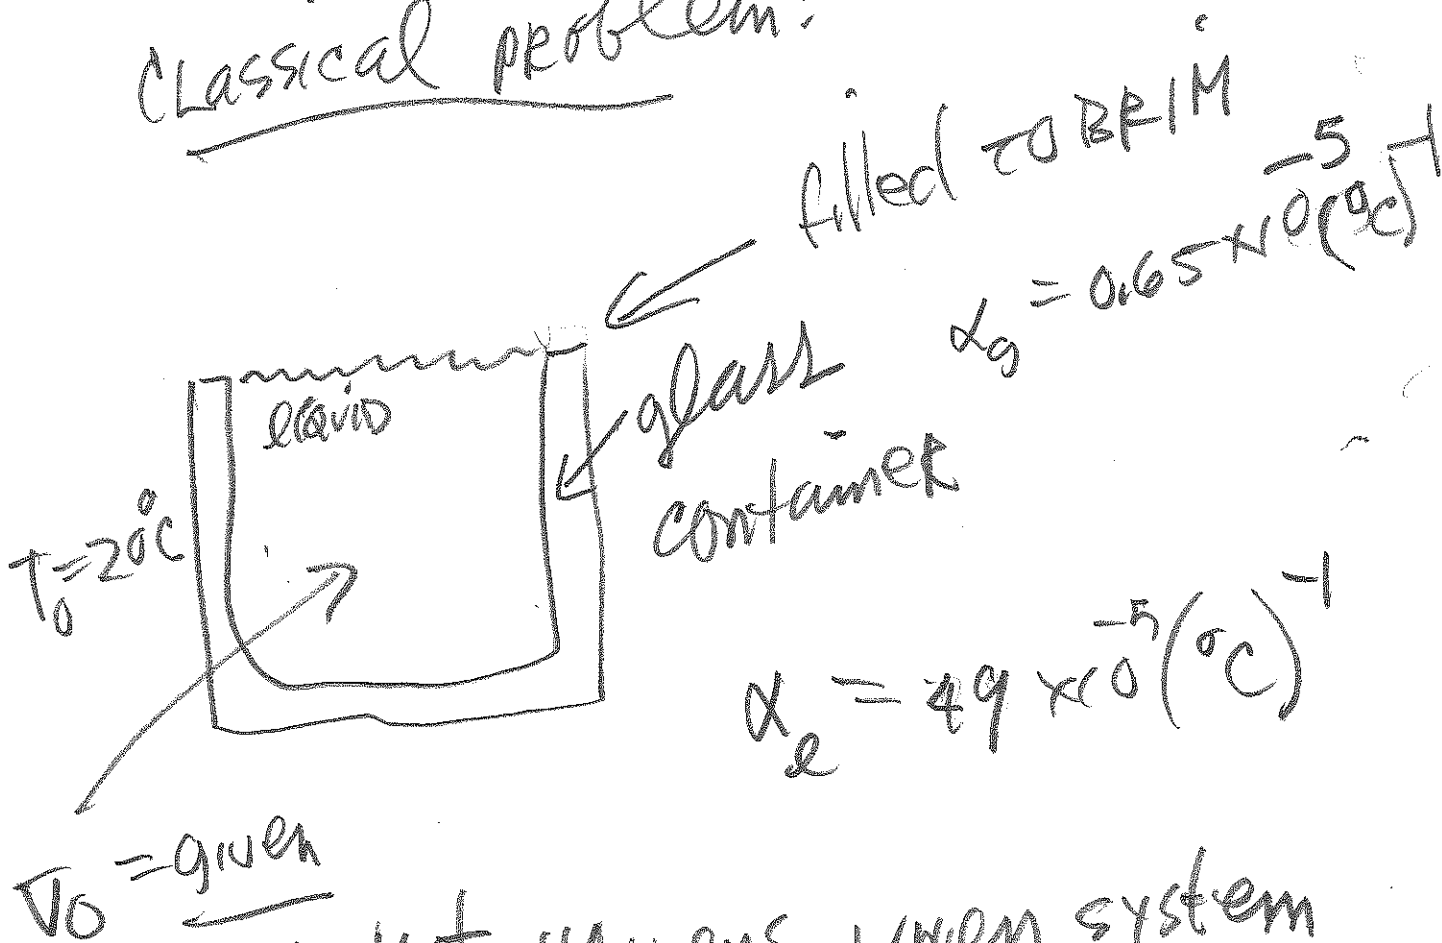 CLassical pROblem:
filled TO BRIM
αg = 0.65 x10^-5 (°C)^-1
liquid
glass
container
T0 = 20°C
αl = 49 x10^-5 (°C)^-1
V0 = given
system